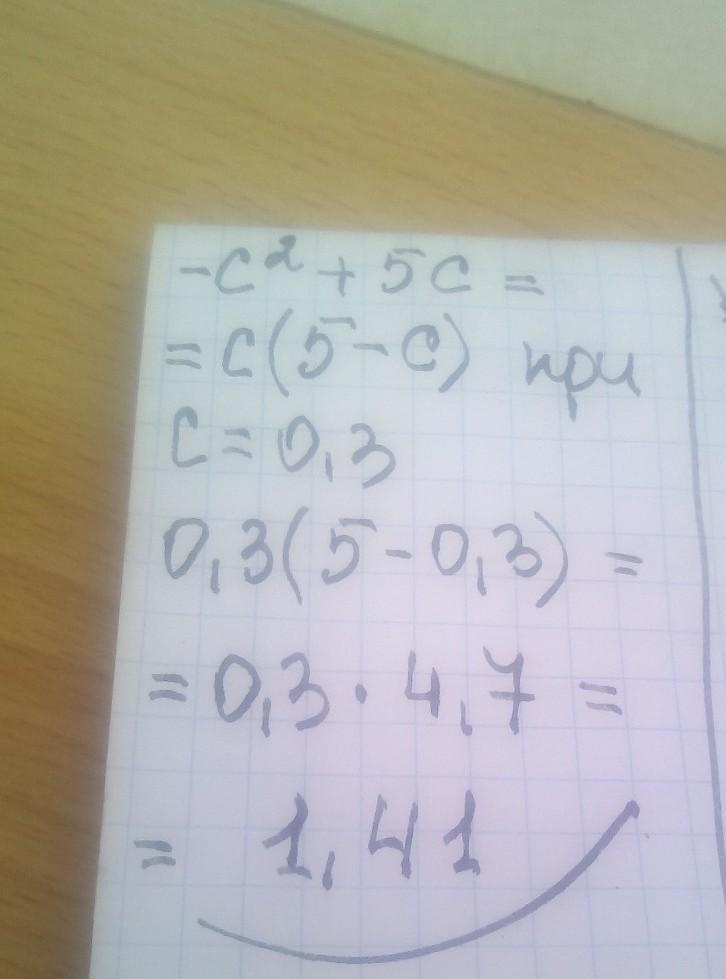 -c² + 5c =
= c(5 - c) при
c = 0,3
0,3(5 - 0,3) =
= 0,3 · 4,7 =
= 1,41